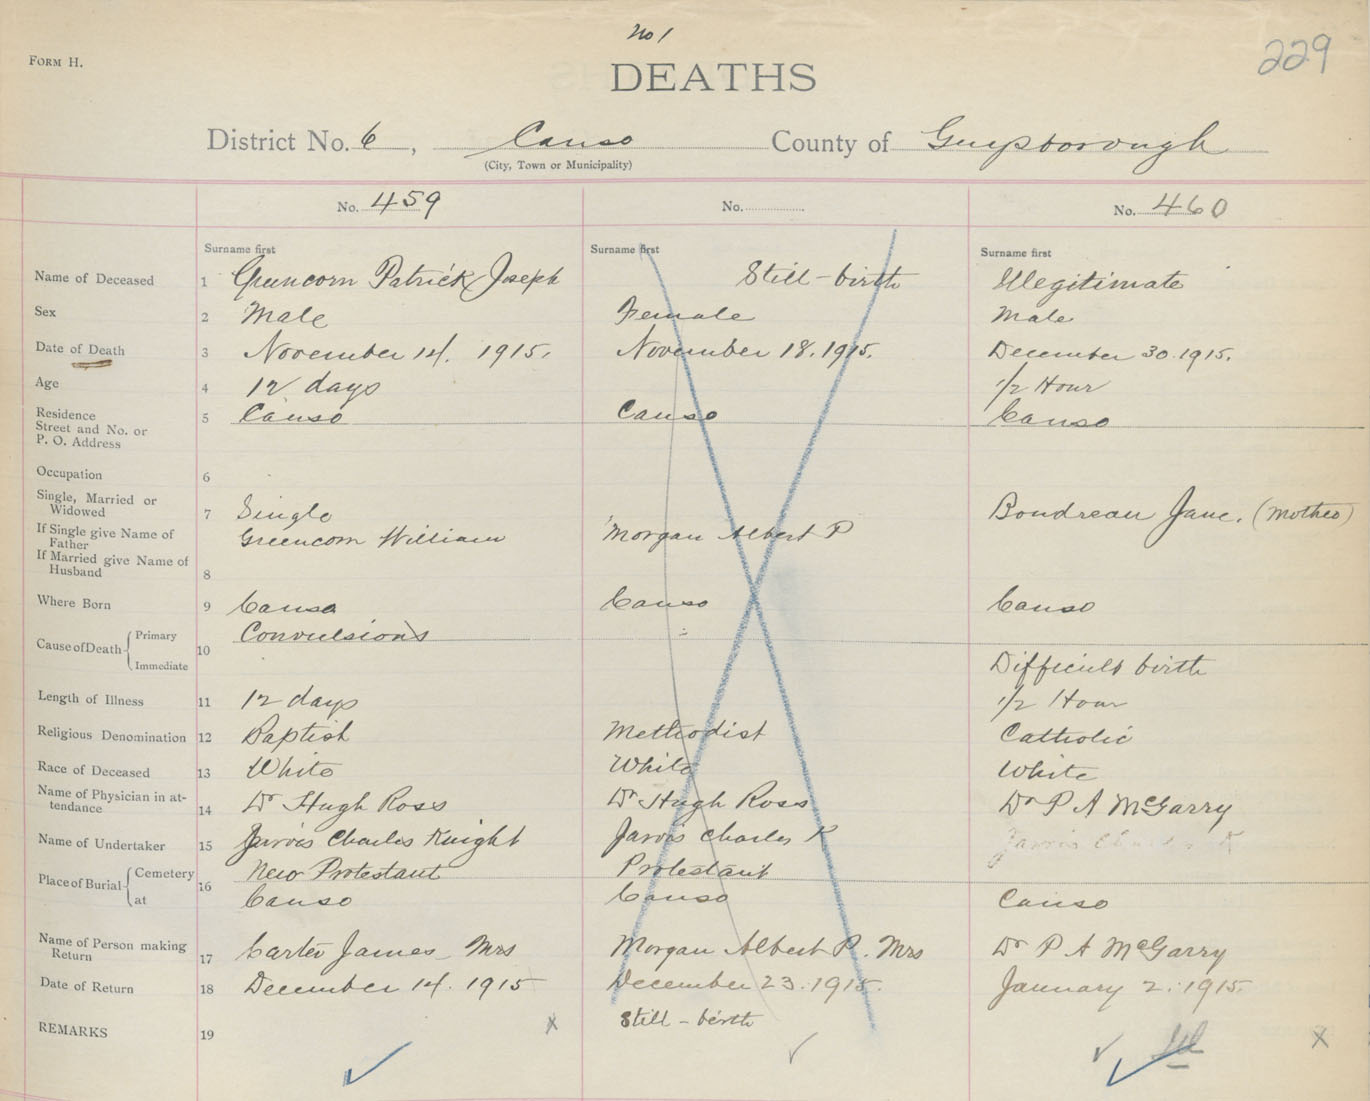 No 1
229
FORM H.
DEATHS
District No. 6, Canso County of Guysborough
(City, Town or Municipality)
No. 459 No. No. 460
Surname first Surname first Surname first
Name of Deceased 1 Greencorn Patrick Joseph Still-birth Illegitimate
Sex 2 Male Female Male
Date of Death 3 November 14. 1915. November 18. 1915. December 30. 1915.
Age 4 12 days 1/2 Hour
Residence
Street and No. or
P. O. Address 5 Canso Canso Canso
Occupation 6
Single, Married or
Widowed 7 Single Boudreau Jane. (Mother)
If Single give Name of
Father Greencorn William Morgan Albert P
If Married give Name of
Husband 8
Where Born 9 Canso Canso Canso
Cause of Death Primary Convulsions
10
Immediate Difficult birth
Length of Illness 11 12 days 1/2 Hour
Religious Denomination 12 Baptist Methodist Catholic
Race of Deceased 13 White White White
Name of Physician in at-
tendance 14 Dr Hugh Ross Dr Hugh Ross Dr P A McGarry
Name of Undertaker 15 Jarvis Charles Knight Jarvis Charles K Jarvis Charles K
Place of Burial Cemetery 16 New Protestant Protestant
at Canso Canso Canso
Name of Person making
Return 17 Carter James Mrs Morgan Albert P. Mrs Dr P A McGarry
Date of Return 18 December 14. 1915 December 23. 1915. January 2. 1915.
REMARKS 19 x Still-birth x